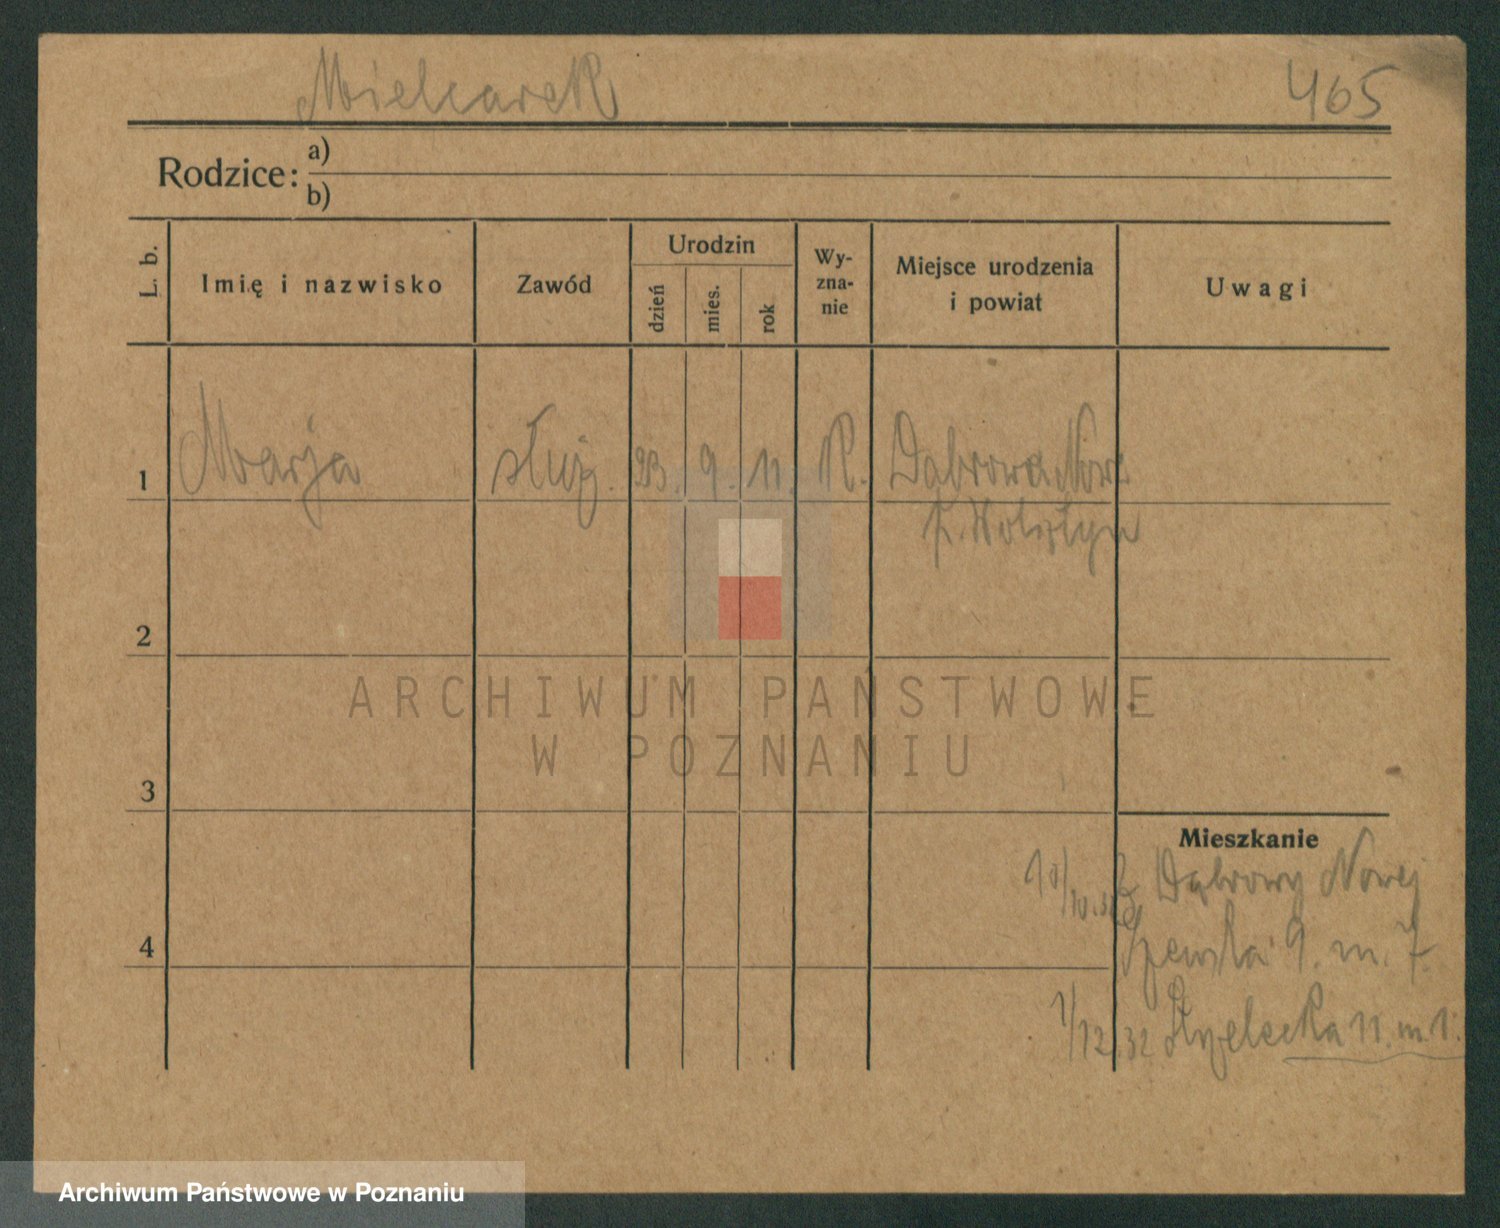 Mielcarek 465
Rodzice: a)
b)
L. b. Imię i nazwisko Zawód Urodzin dzień mies. rok Wy-zna-nie Miejsce urodzenia i powiat Uwagi
1 Marja służ. 23. 9. 11. R. Dąbrowa Nowa
p. Wolsztyn
2
ARCHIWUM PAŃSTWOWE
W POZNANIU
3
Mieszkanie
z Dąbrowy Nowej
4 9. m. 7.
1/12.32 Strzelecka 11. m. 1.
Archiwum Państwowe w Poznaniu